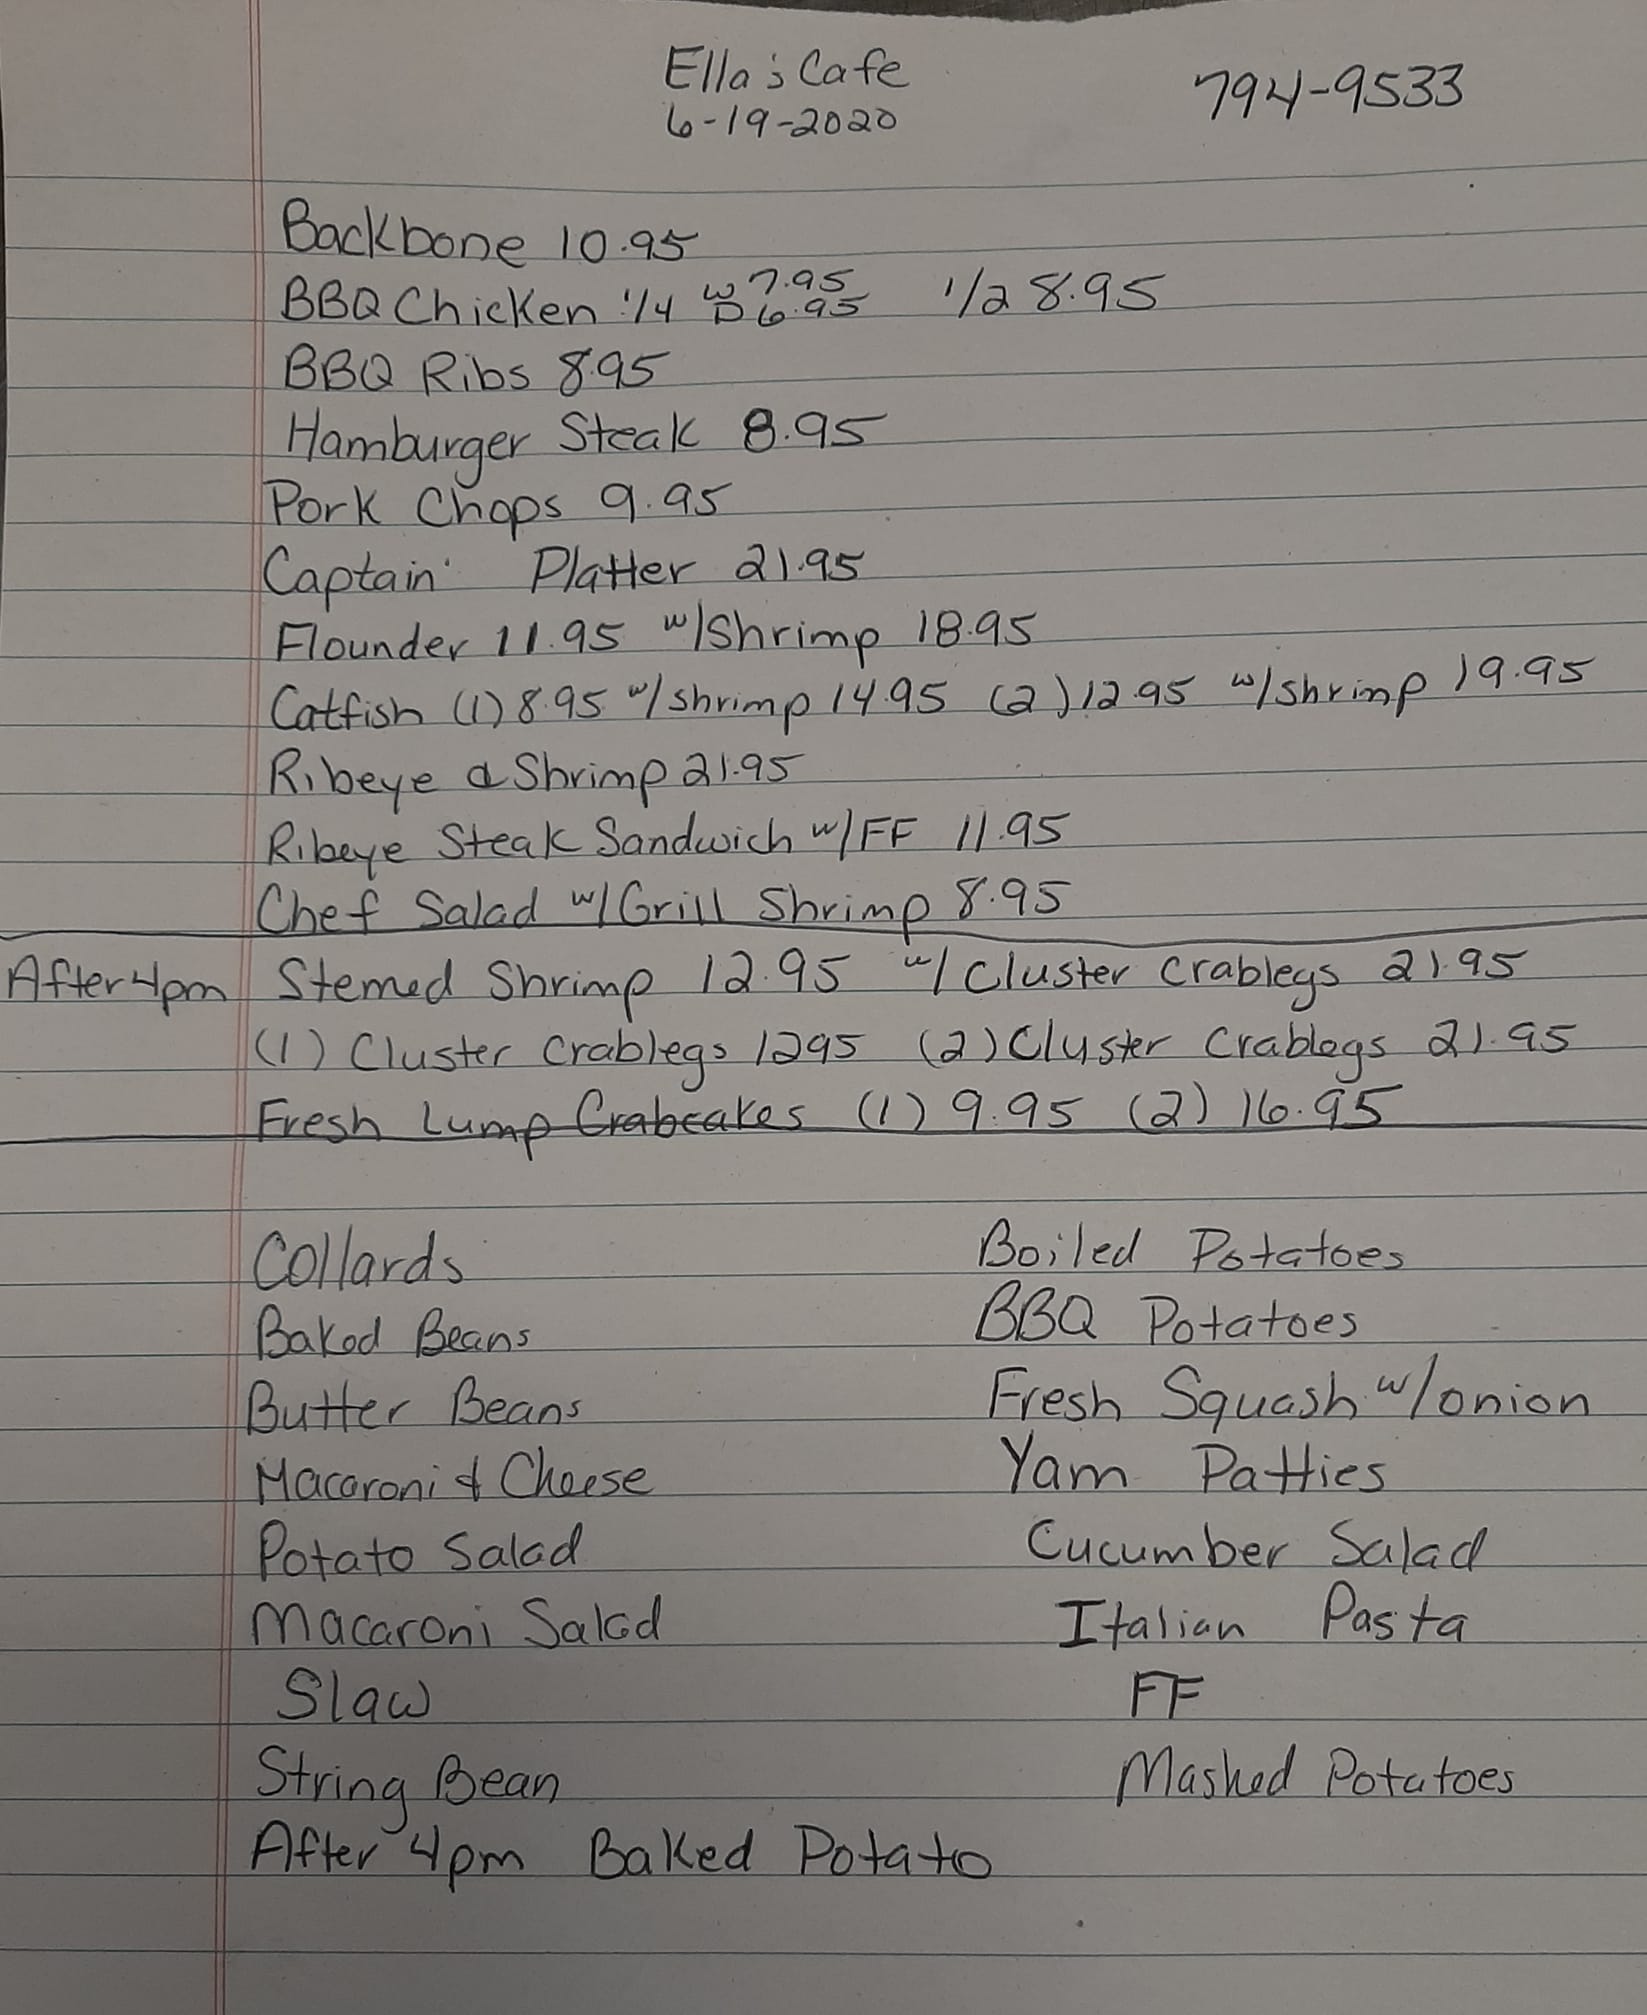 Ella's Cafe
794-9533
6-19-2020
Backbone 10.95
BBQ Chicken 1/4 W 7.95 D 6.95 1/2 8.95
BBQ Ribs 8.95
Hamburger Steak 8.95
Pork Chops 9.95
Captain' Platter 21.95
Flounder 11.95 w/Shrimp 18.95
Catfish (1) 8.95 w/shrimp 14.95 (2) 12.95 w/shrimp 19.95
Ribeye & Shrimp 21.95
Ribeye Steak Sandwich w/FF 11.95
Chef Salad w/Grill Shrimp 8.95
After 4pm Stemed Shrimp 12.95 w/Cluster Crablegs 21.95
(1) Cluster Crablegs 1295 (2) Cluster Crablegs 21.95
Fresh Lump Crabcakes (1) 9.95 (2) 16.95
Collards Boiled Potatoes
Baked Beans BBQ Potatoes
Butter Beans Fresh Squash w/onion
Macaroni & Cheese Yam Patties
Potato Salad Cucumber Salad
Macaroni Salad Italian Pasta
Slaw FF
String Bean Mashed Potatoes
After 4pm Baked Potato